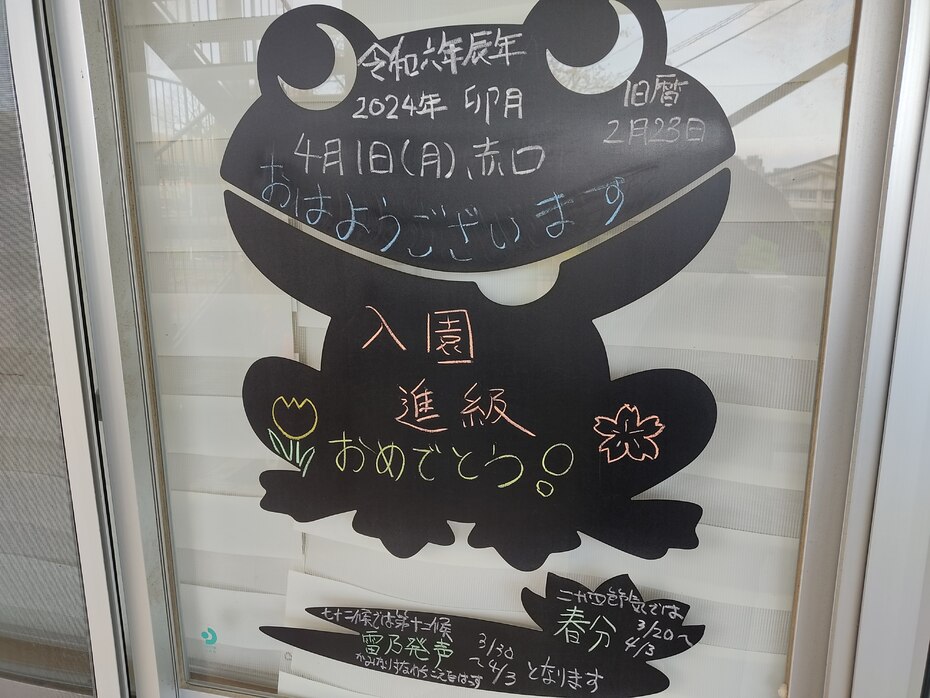 令和六年辰年
2024年 卯月
旧暦
2月23日
4月1日(月)赤口
おはようございます
入園
進級
おめでとう!
七十二候では第十二候
雷乃発声
かみなりすなわちこえをはっす
3/30
~4/3 となります
二十四節気では
春分
3/20~
4/3